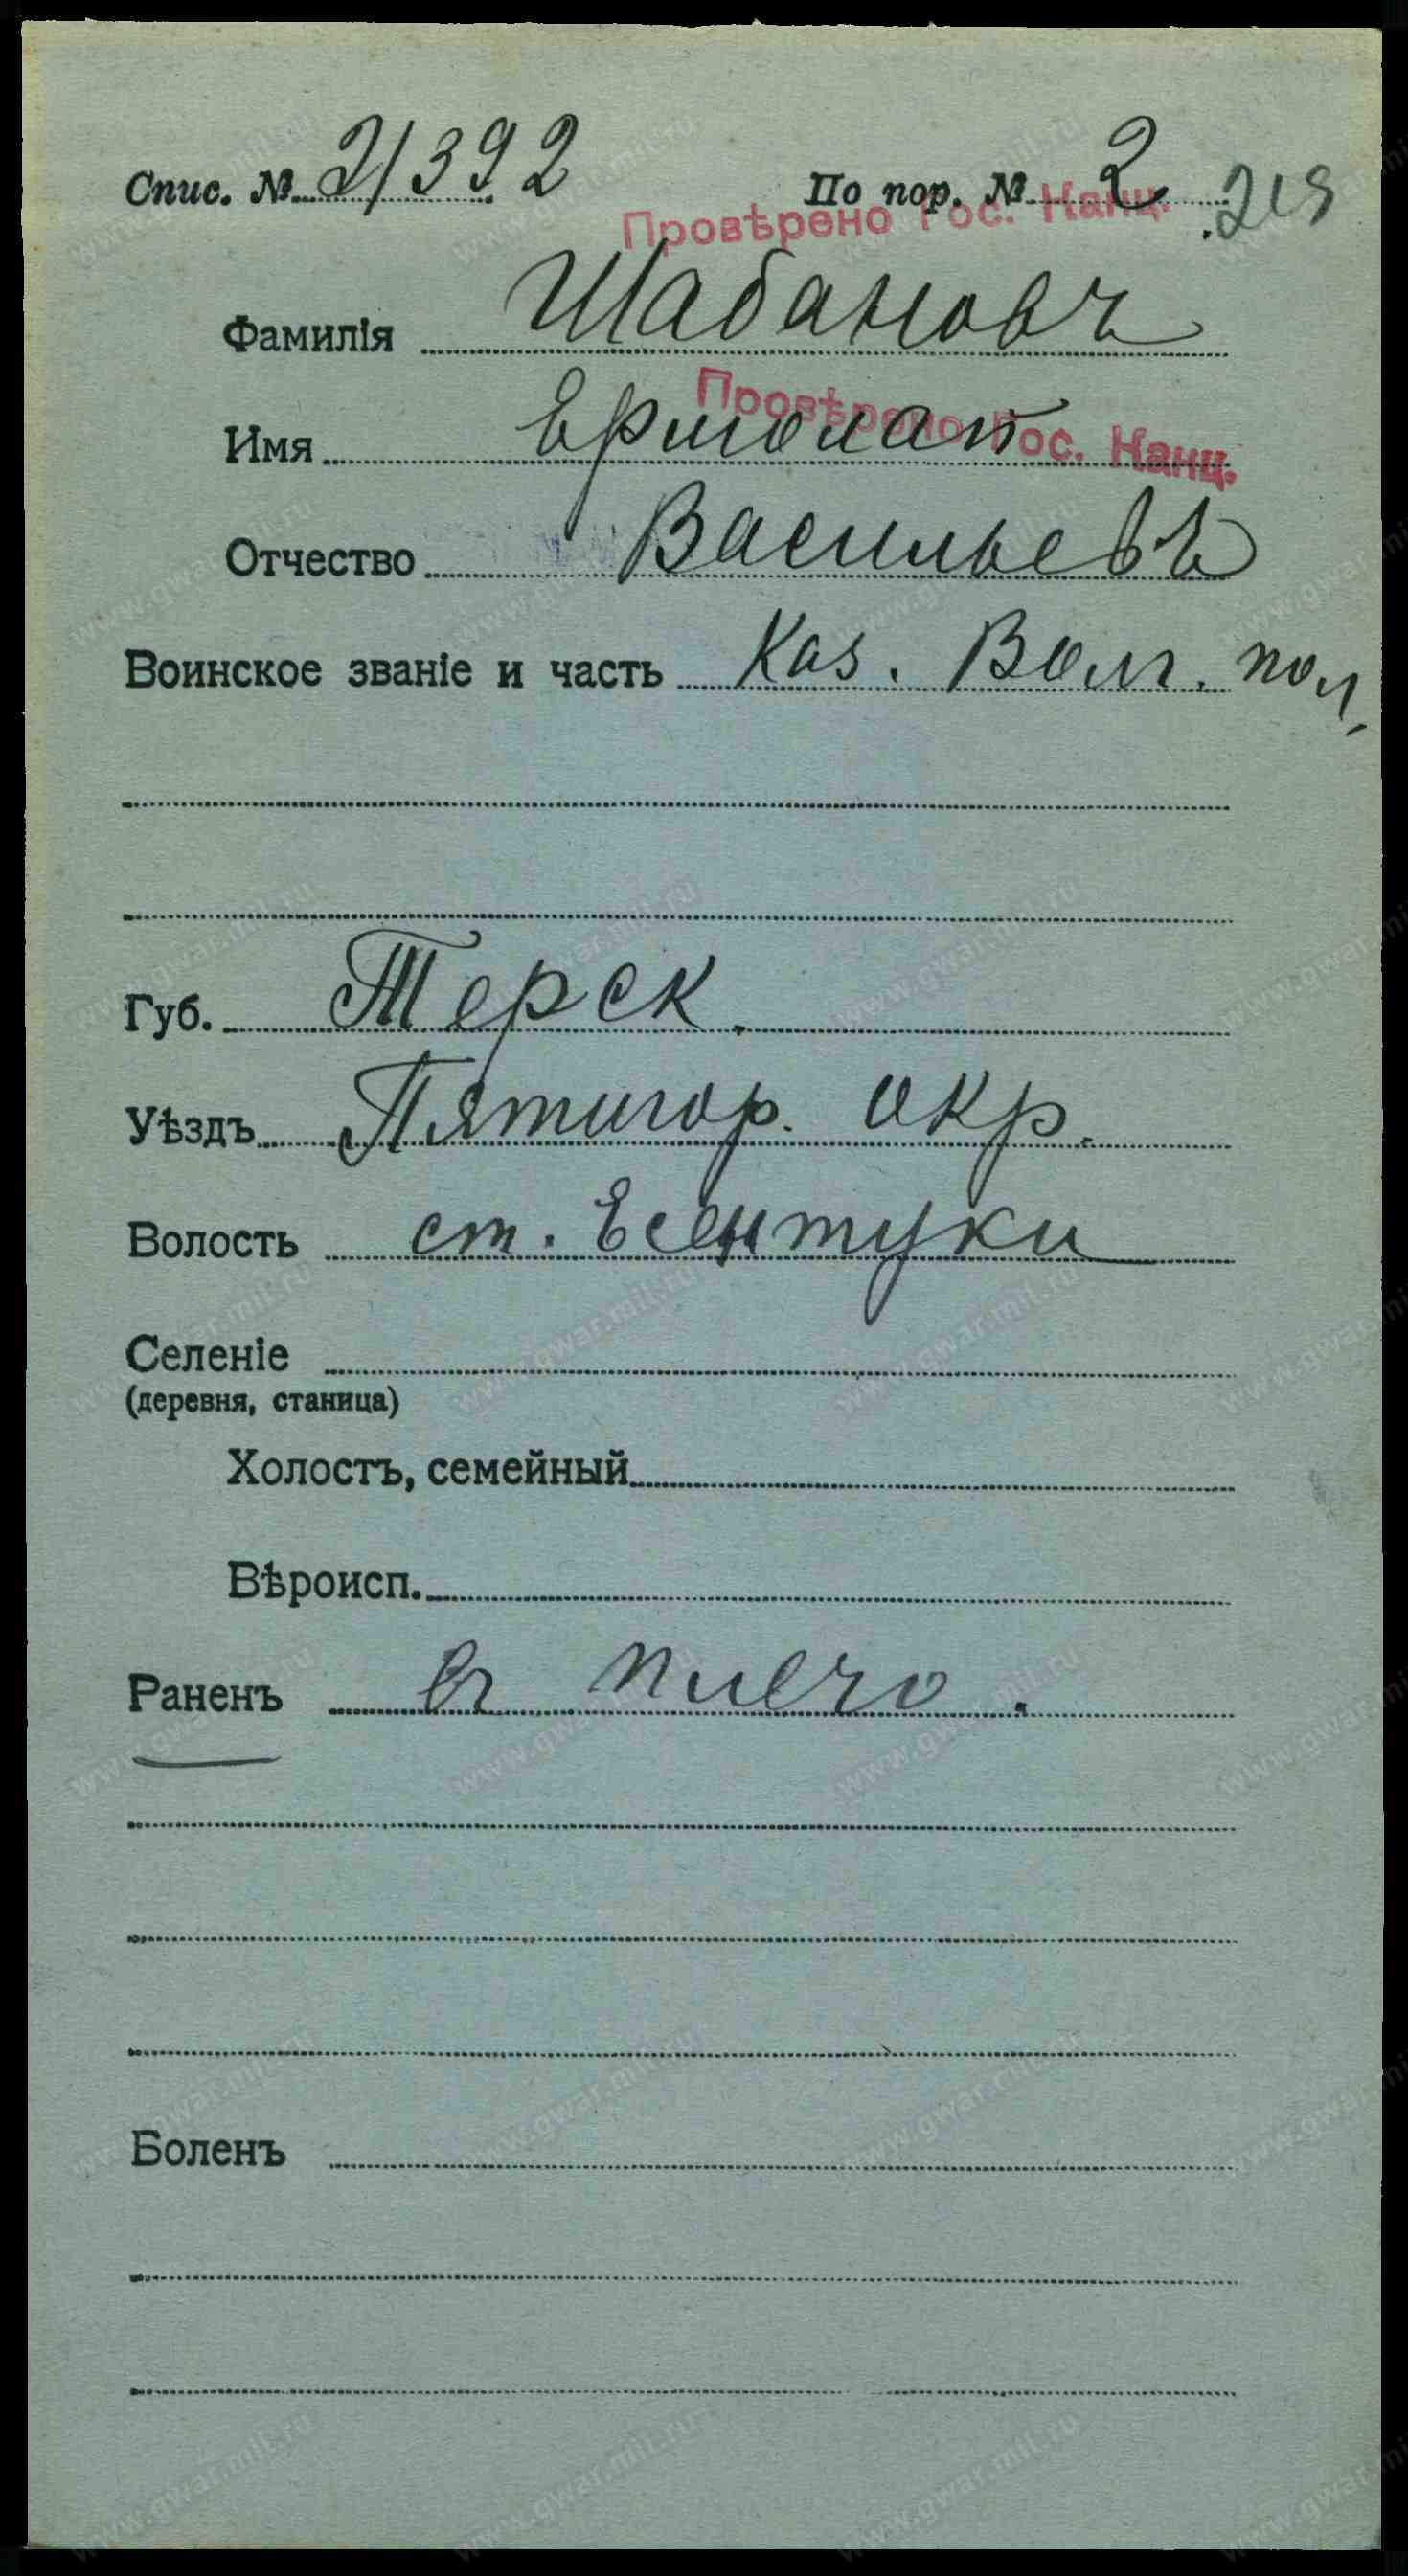 Спис. № 21392 По пор. № 2
Провѣрено Гос. Канц.
Фамилія Шабановъ
Провѣрено Гос. Канц.
Имя Ермолай
Отчество Васильевъ
Воинское званіе и часть Каз. Волг. пол.
Губ. Терск.
Уѣздъ Пятигор. окр.
Волость ст. Есентуки
Селеніе
(деревня, станица)
Холостъ, семейный
Вѣроисп.
Раненъ въ плечо.
Боленъ